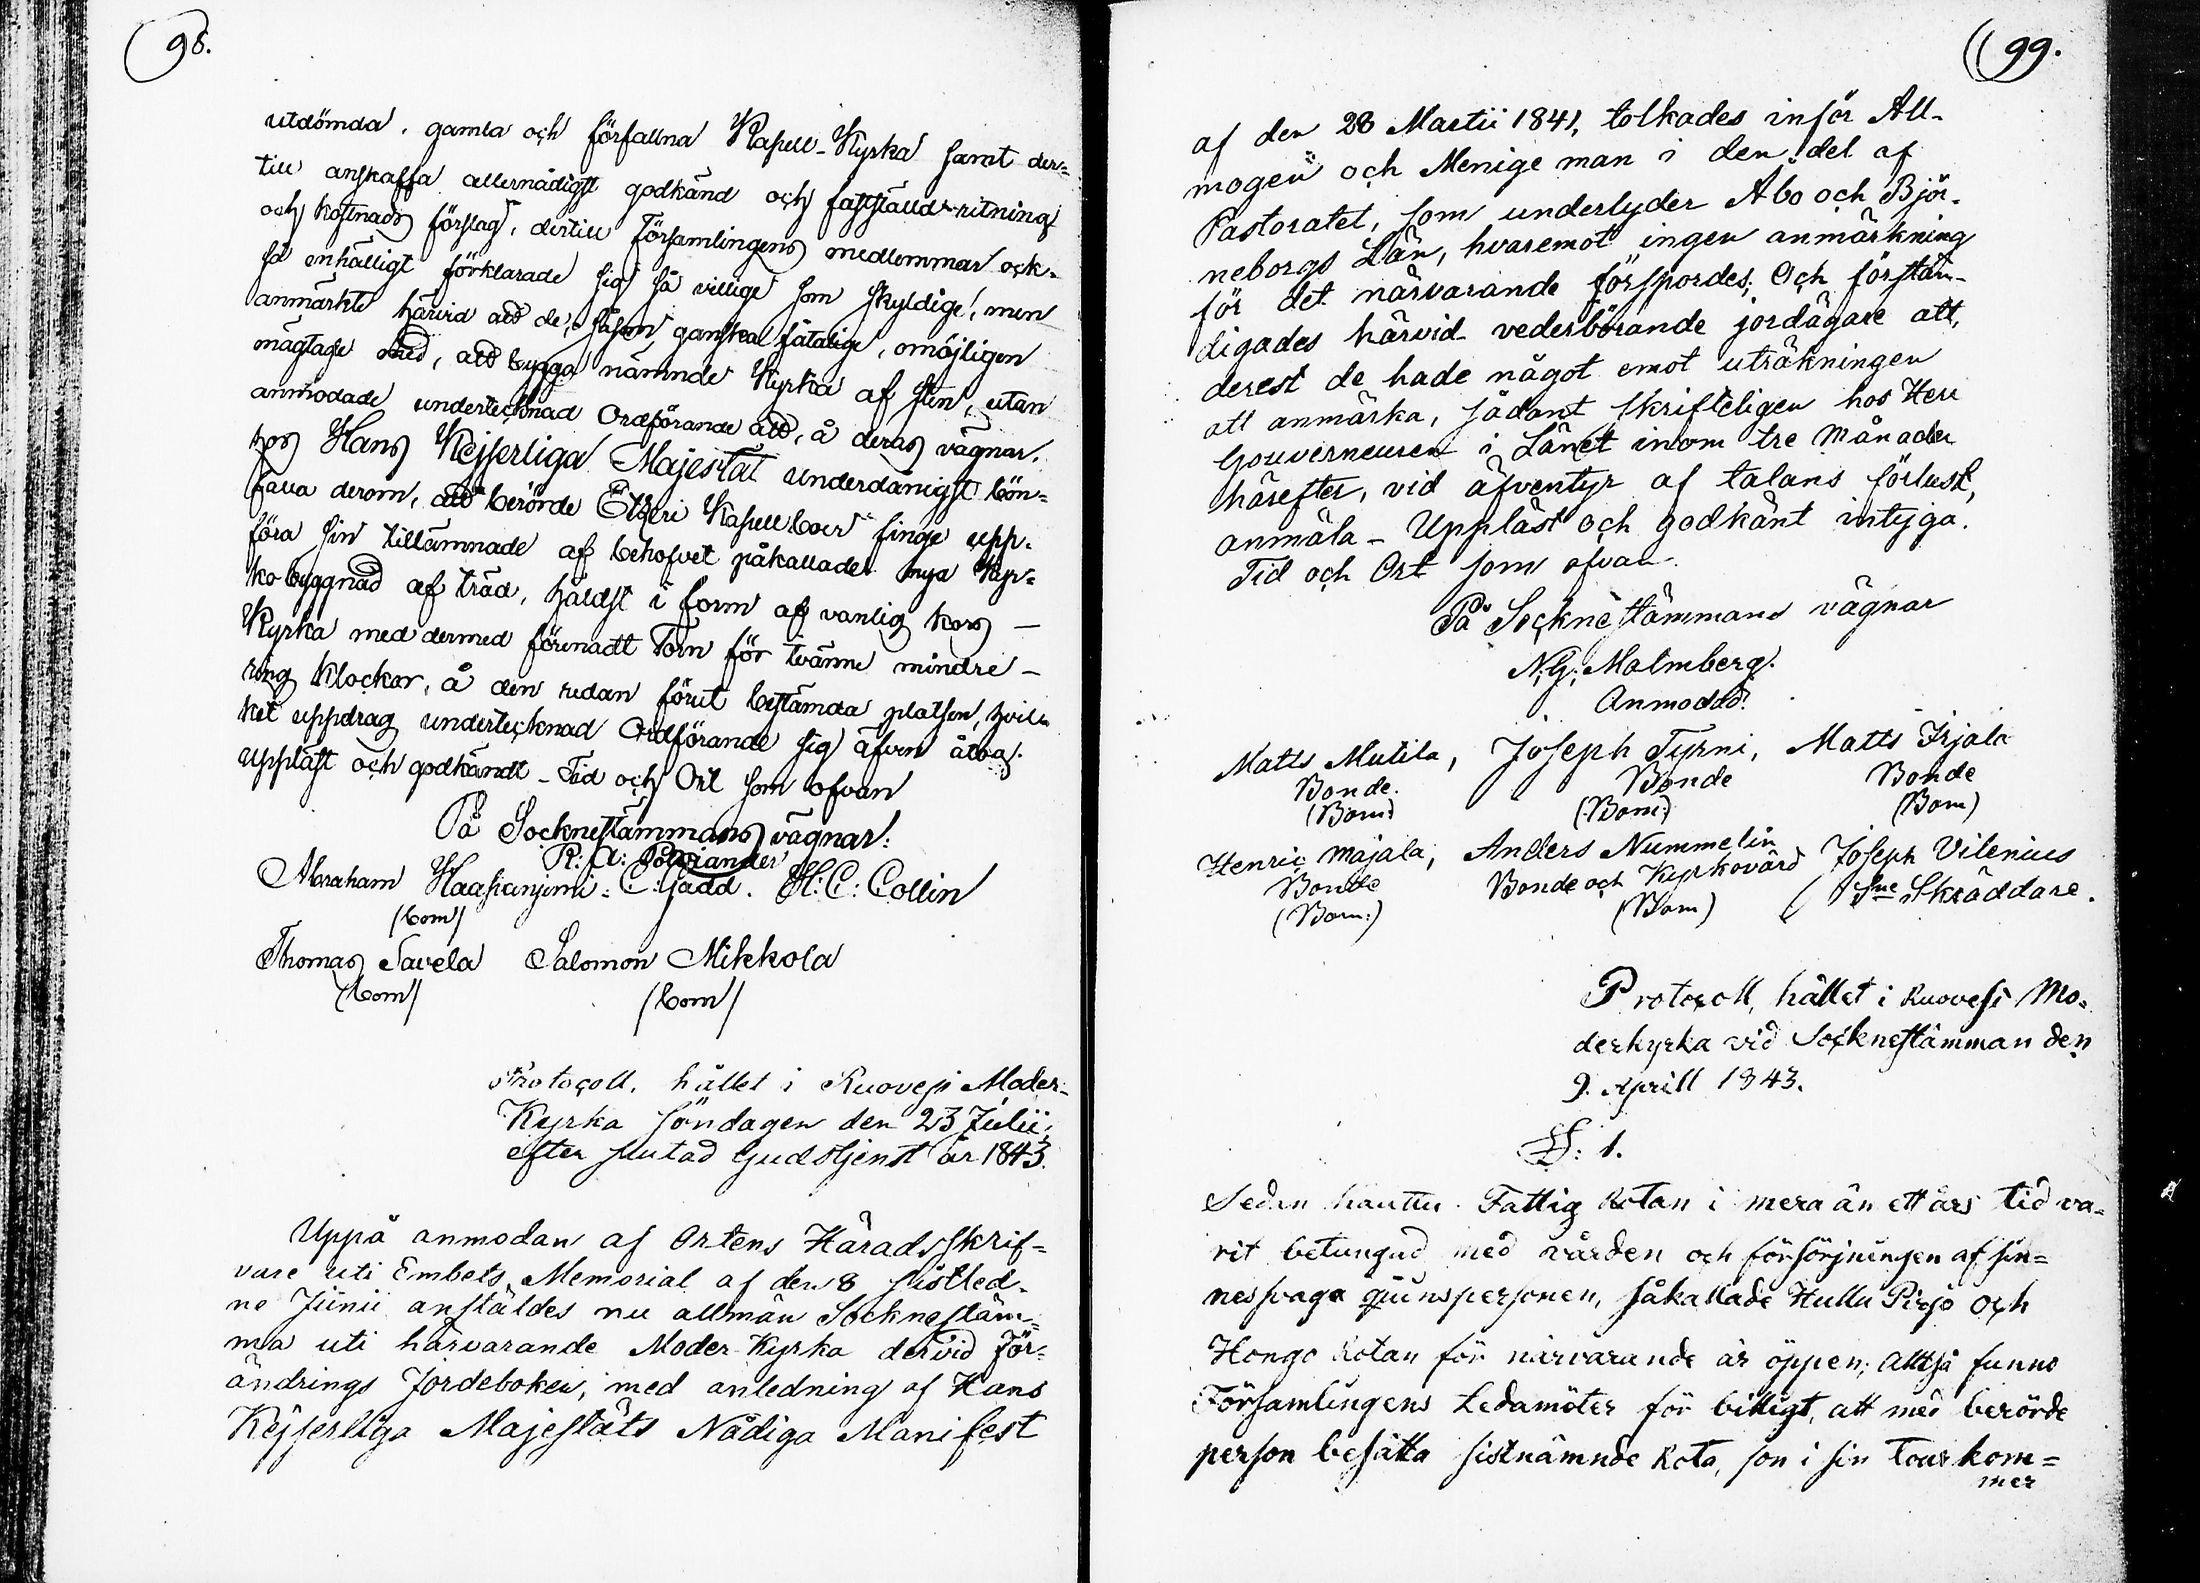 98.
utdömda, gamla och förfallna Kapell-Kyrka samt der=
till anskaffa allernådigst godkänd och fastställd ritning
och kostnads förslag, dertill Församlingens medlemmar ock-
så enhälligt förklarade sig så villige som skyldige, men
anmärkte härvid att de, såsom ganska fåtalige, omöjligen
mägtade med, att bygga nämnde Kyrka af sten, utan
anmodade undertecknad Ordförande att, å deras vägnar,
hos Hans Kejserliga Majestät underdånigst bön=
falla derom, att berörde Etzeri Kapellboer finge upp-
föra sin tillämnade af behofvet påkallade nya Kyr=
ko byggnad af träd, häldst i form af vanlig kors –
Kyrka med dermed förenadt Torn för tvänne mindre –
ring klockor, å den redan förut bestämda platsen, hvil-
ket uppdrag undertecknad Ordförande sig äfven åtog.
Uppläst och godkändt – Tid och Ort som ofvan
På Sockneståmmans vägnar:
R: A:
Abraham Haapaniemi. C: Gadd. H: C: Collin
(bom)
Thomas Savela Salomon Mikkola
(bom) (bom)
Protocoll, hållet i Ruovesi Moder-
Kyrka söndagen den 23 Julii,
efter slutad Gudstjenst år 1843.
Uppå anmodan af Ortens Häradsskrif=
vare uti Embets Memorial af den 8 sistled-
ne Junii anstäldes nu allmän Socknestäm=
ma uti härvarande Moder-Kyrka dervid För=
ändrings Jordeboken, med anledning af Hans
Kejserliga Majestäts Nådiga Manifest
99.
af den 28 Martii 1841, tolkades inför All-
mogen och Menige man i den del af
Pastoratet, som underlyder Åbo och Björ-
neborgs Län, hvaremot ingen anmärkning
för det närvarande förspordes; Och förstän-
digades härvid vederbörande jordägare att,
derest de hade något emot uträkningen
att anmärka, sådant skrifteligen hos Herr
Gouverneuren i Länet inom tre Månader
härefter, vid äfventyr af talans förlust,
anmäla – Uppläst och godkänt intyga.
Tid och Ort som ofvan.
På Socknestämmans vägnar
N: G: Malmberg.
Anmodad.
Matts Mutila, Joseph Tyrni, Matts Irjala
Bonde. Bonde Bonde
(Bom) (Bom:) (Bom)
Henric Majala, Anders Nummelin Joseph Vilenius
Bonde Bonde och Kyrkovärd Sne Skräddare.
(Bom:) (Bom)
Protocoll, hållet i Ruovesi Mo-
derkyrka vid Socknestämman den
9. Aprill 1843.
§: 1.
Sedan Fattig Rotan i mera än ett års tid va-
rit betungad med vården och försörjningen af sin=
nessvaga qvinspersonen, såkallade Hullu Pirjo och
Hongo Rotan för närvarande är öppen; Alltså funno
Församlingens Ledamöter för billigt, att med berörde
person besätta sistnämnde Rota, som i sin tour kom=
mer